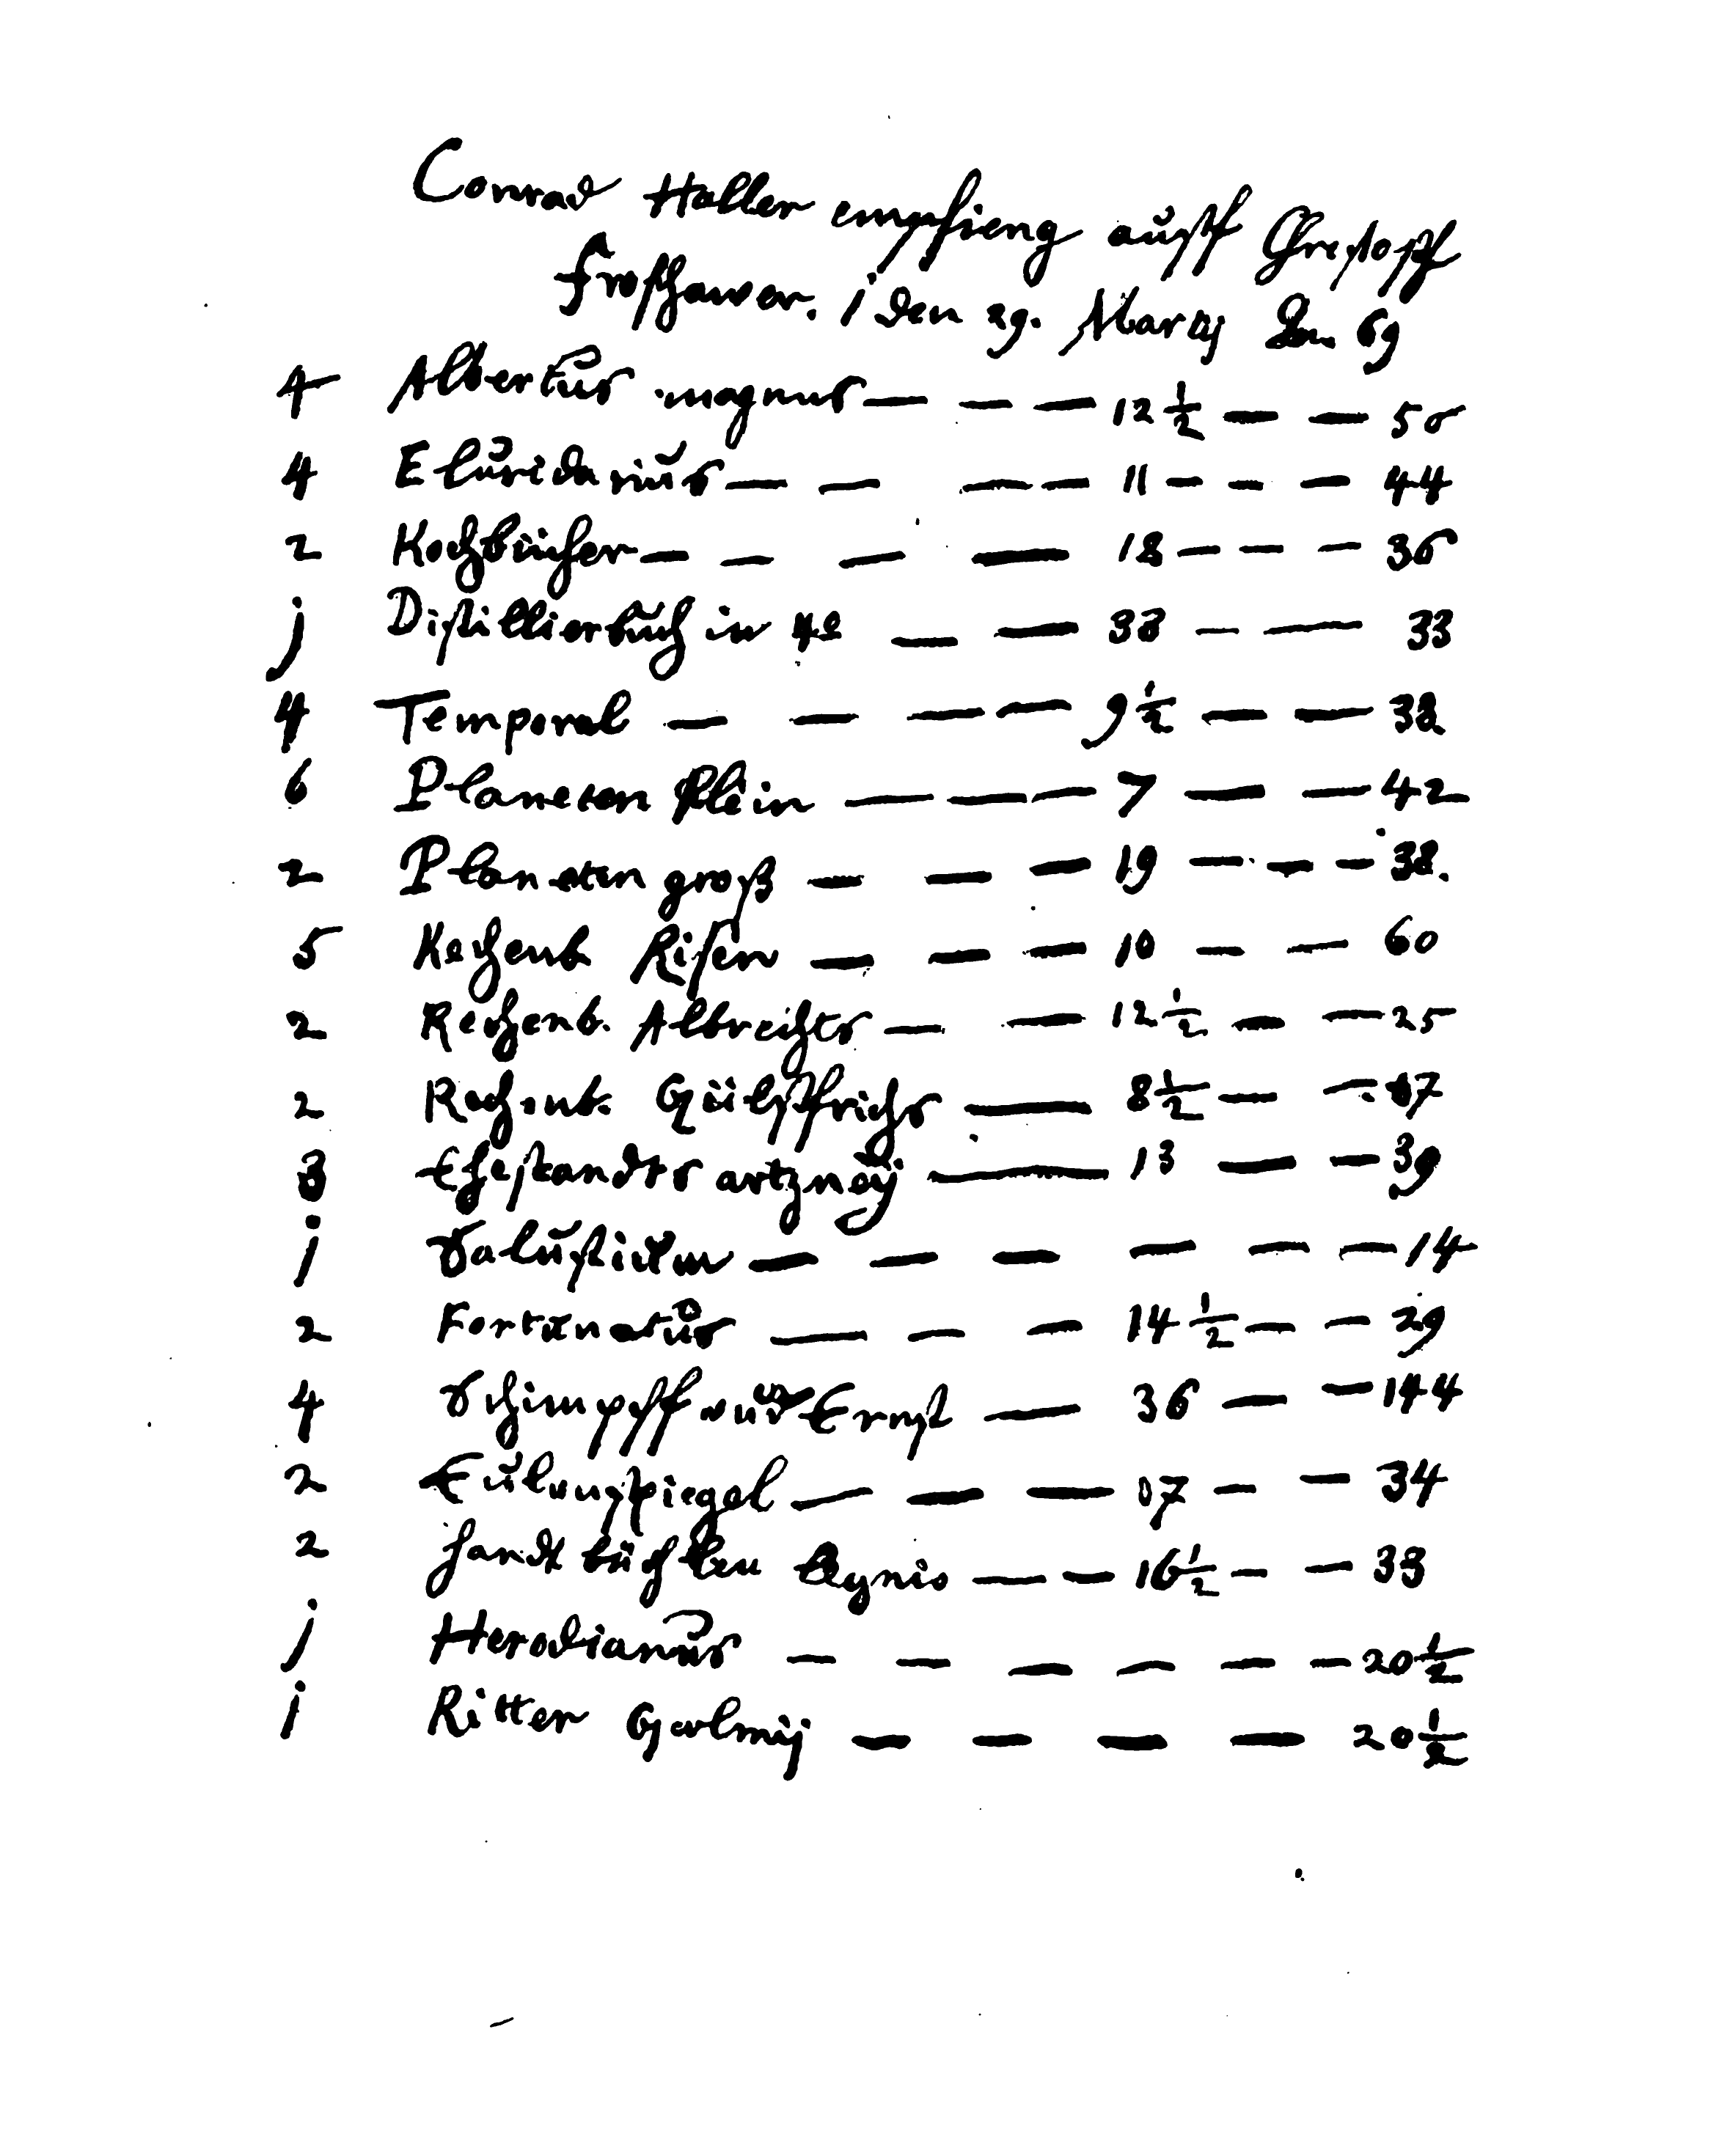 Conrad Haller empfieng auff Christoff
froschawer. j den 29. Martij Im 69
4 Albertus magnus — — — 12 ½ — — 50
4 Elucidarius — — — — 11 — — — 44
2 Kochbücher — — — — 18 — — — 36
j Distillierbuch in 4o — — 33 — — 33
4 Temporal — — — — 9 ½ — — 38
6 Planeten klein — — — 7 — — 42
2 Planeten groß — — — 19 — — — 38.
5 Rechenb Risen — — — 10 — — 60
2 Rechenb. Albrechts — — 12 ½ — — 25
2 Rechenb. Gülfferichs — 8 ½ — — 17
3 Ehestandts artzney — 13 — — 39
j Salustium — — — — — — 14
2 Fortunatus — — — 14 ½ — — 29
4 Schimpff vnd Ernst — 36 — — 144
2 Eulenspiegel — — — 17 — — 34
2 handtbüchlen — — 16 ½ — — 33
j Herodianus — — — — — — 20 ½
j Ritter Galmij — — — — 20 ½